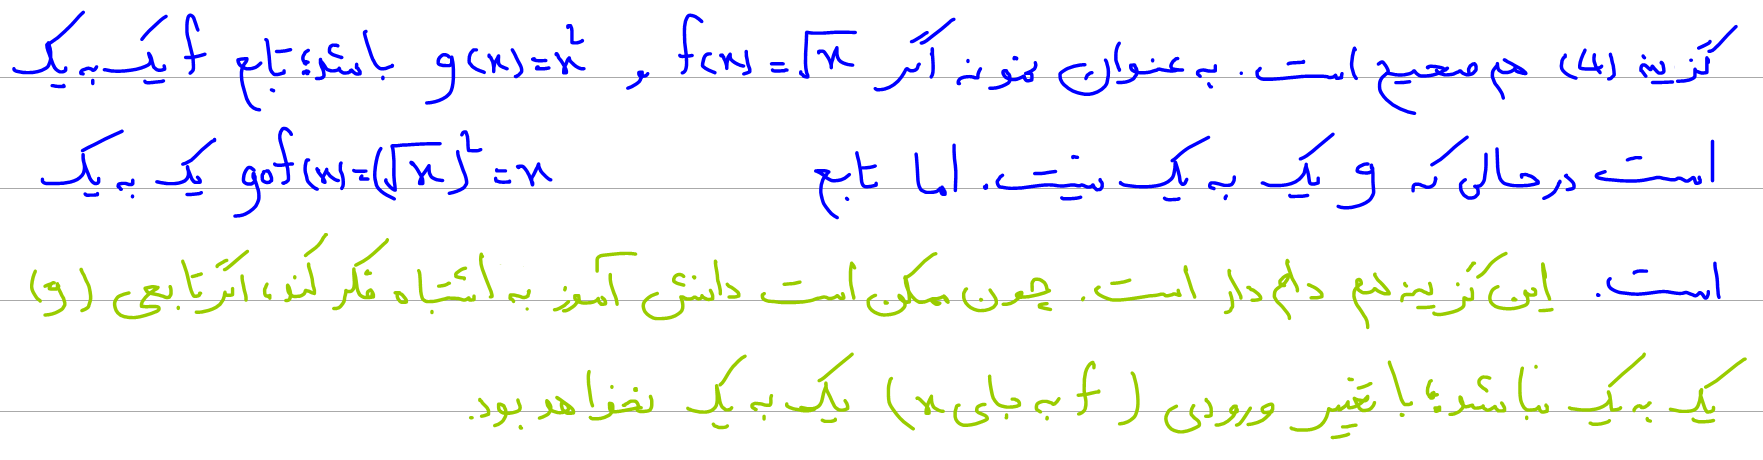 گزینه (4) هم صحیح است. به عنوان نمونه اگر f(x)=√x و g(x)=x² باشد؛ تابع f یک به یک
است درحالی که g یک به یک نیست. اما تابع gof(x)=(√x)²=x یک به یک
است. این گزینه هم دام دار است. چون ممکن است دانش آموز به اشتباه فکر کند، اگر تابعی (g)
یک به یک نباشد؛ با تغییر ورودی (f به جای x) یک به یک نخواهد بود.